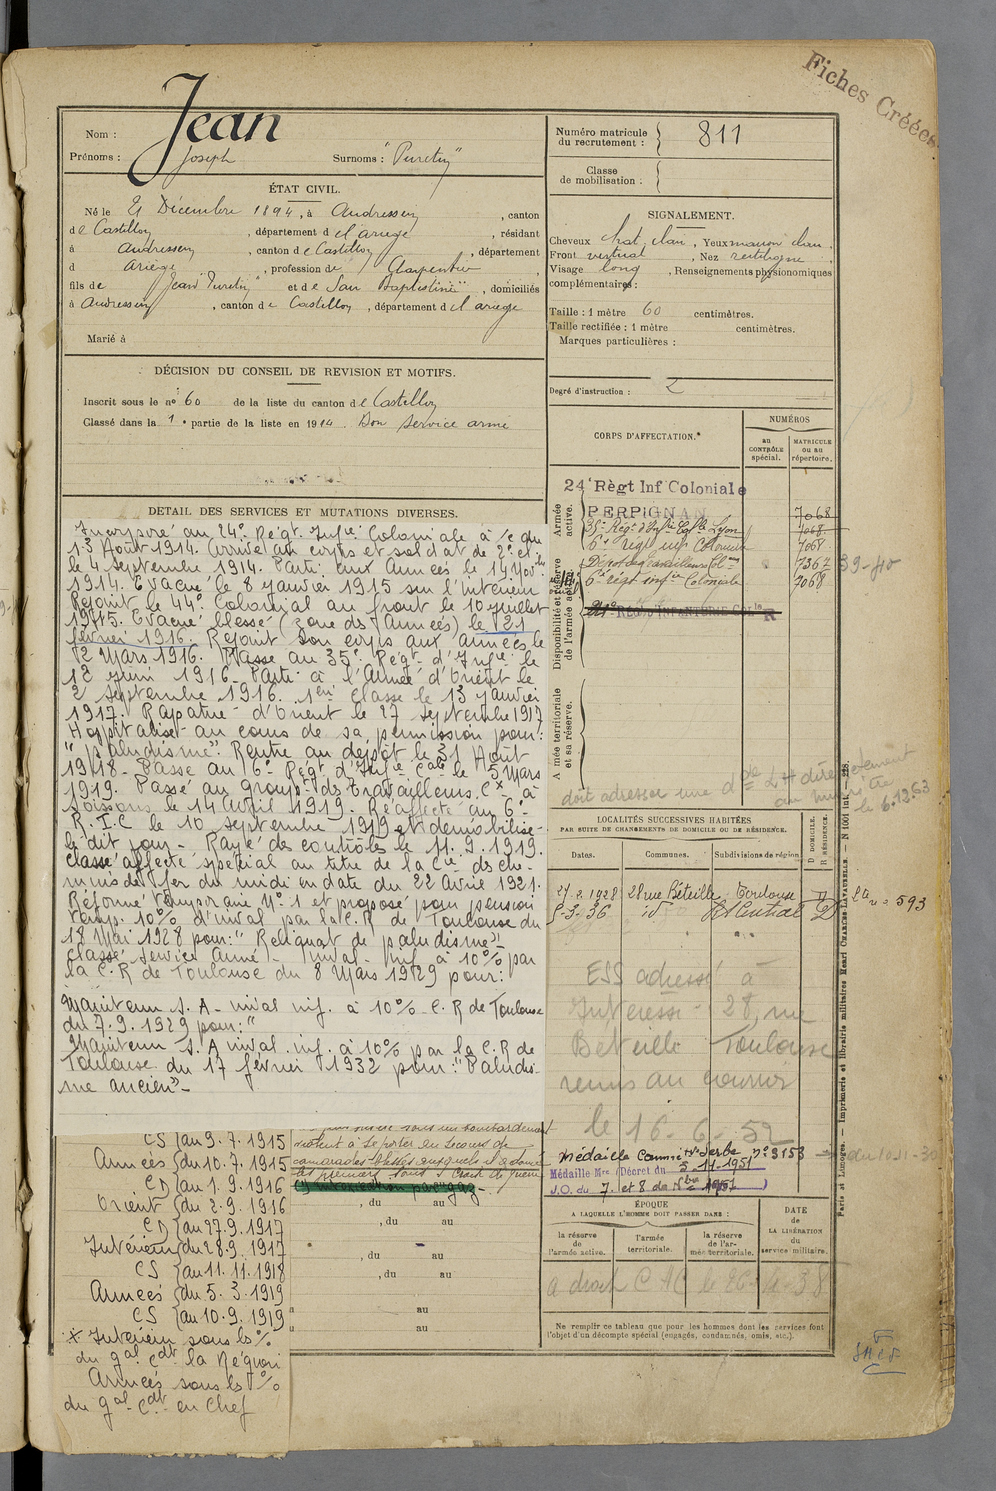 Fiches Créées
Nom : Jean
Prénoms : Joseph Surnoms : "Puretin"
Numéro matricule du recrutement : 811
Classe de mobilisation :
ÉTAT CIVIL.
Né le 21 Décembre 1894, à Audressein, canton
de Castillon, département de l'ariège, résidant
à Audressein, canton de Castillon, département
d Ariège, profession de Charpentier,
fils de Jean "Puretin" et de Jan Baptistine, domiciliés
à Audressein, canton de Castillon, département de l'ariège
Marié à
SIGNALEMENT.
Cheveux chat. clair, Yeux marron clair.
Front vertical, Nez rectiligne,
Visage long, Renseignements physionomiques
complémentaires :
Taille : 1 mètre 60 centimètres.
Taille rectifiée : 1 mètre centimètres.
Marques particulières :
Degré d'instruction : 2
DÉCISION DU CONSEIL DE REVISION ET MOTIFS.
Inscrit sous le nº 60 de la liste du canton de Castillon
Classé dans la 1e partie de la liste en 1914. Bon service armé
DETAIL DES SERVICES ET MUTATIONS DIVERSES.
Incorporé au 24e Régt. Infie Coloniale à c/ du
13 Août 1914. Arrivé au corps et soldat de 2e cl.
le 4 septembre 1914. Parti aux Armées le 14 Novbre
1914. Evacué le 8 janvier 1915 sur l'Intérieur
Rejoint le 44e Colonial au front le 10 juillet
1915. Evacué blessé (zone des Armées) le 21
février 1916. Rejoint son corps aux armées le
12 Mars 1916. Passé au 35e Régt d'Infie le
12 juin 1916. Parti à l'Armée d'Orient le
2 septembre 1916. 1ère classe le 13 janvier
1917. Rapatrié d'Orient le 27 septembre 1917
Hospitalisé au cours de sa permission pour :
"paludisme". Rentré au dépôt le 31 Août
1918. Passé au 6e Régt d'Infie Cale le 5 Mars
1919. Passé au groupt des travailleurs Cx à
Soissons le 14 Avril 1919. Réaffecté au 6e
R.I.C le 10 septembre 1919 et démobilisé
le dit jour. Rayé des contrôles le 11.9.1919.
Classé affecté spécial au titre de la Cie des che-
mins de fer du midi en date du 22 Avril 1921.
Réformé temporaire Nº 1 et proposé pour pension
temp. 10% d'inval par la C.R de Toulouse du
18 Mai 1928 pour : "Reliquat de paludisme"
Classé Service Armé - Inval. inf. à 10% par
la C.R de Toulouse du 8 Mars 1929 pour :
Maintenu S.A. inval inf. à 10% C.R de Toulouse
du 7.9.1929 pour : "
Maintenu S.A inval. inf. à 10% par la C.R de
Toulouse du 17 février 1932 pour : "Paludis-
me ancien"
CORPS D'AFFECTATION.*
NUMÉROS
au CONTRÔLE spécial.
MATRICULE ou au répertoire.
Armée active.
24e Règt Inf Coloniale
PERPIGNAN 7068
35e Régt d'Infie Colle Lyon 7068
6e régt inf Coloniale 7068
Dépôt des travailleurs Colaux 7367
6e régt infie Coloniale 7068
39-40
Disponibilité et réserve de l'armée active.
RÉGt INFANTERIE Colle R
Armée territoriale et sa réserve.
doit adresser une dde L H directement
au ministre
le 6.12.63
LOCALITÉS SUCCESSIVES HABITÉES
PAR SUITE DE CHANGEMENTS DE DOMICILE OU DE RÉSIDENCE.
Dates. Communes. Subdivisions de région. D DOMICILE. R RÉSIDENCE.
27.2.1928 28 rue Béteille Toulouse D
5-3-36 id
nº 593
ESS adressé à
Intéressé 28, rue
Béteille Toulouse
remis au courrier
le 16-6-52
Médaille Commive Serbe Nº 3153
Médaille Mre (Décret du 5.11.1951
J.O. du 7. et 8 de Nbre 1951)
ÉPOQUE
A LAQUELLE L'HOMME DOIT PASSER DANS :
la réserve de l'armée active.
l'armée territoriale.
la réserve de l'armée territoriale.
DATE de LA LIBÉRATION du service militaire.
a droit C A C le 26-4-38
Ne remplir ce tableau que pour les hommes dont les services font
l'objet d'un décompte spécial (engagés, condamnés, omis, etc.).
CS (au 9.7.1915
Armées (du 10.7.1915
CD (au 1.9.1916
Orient (du 2.9.1916
CD (au 27.9.1917
Intérieur (du 28.9.1917
CS (au 11.11.1918
Armées (du 5.3.1919
CS (au 10.9.1919
* Intérieur sous les %
du gal cdt la Région
Armées sous les %
du gal cdt en chef
sous un bombardement
violent à se porter au secours de
camarades blessés auxquels il a donné
les premiers soins. Croix de guerre
intoxication par gaz
, du au
, du au
, du au
, du au
au
au
Paris et Limoges. — Imprimerie et librairie militaires Henri CHARLES-LAVAUZELLE. — N 1001 int.